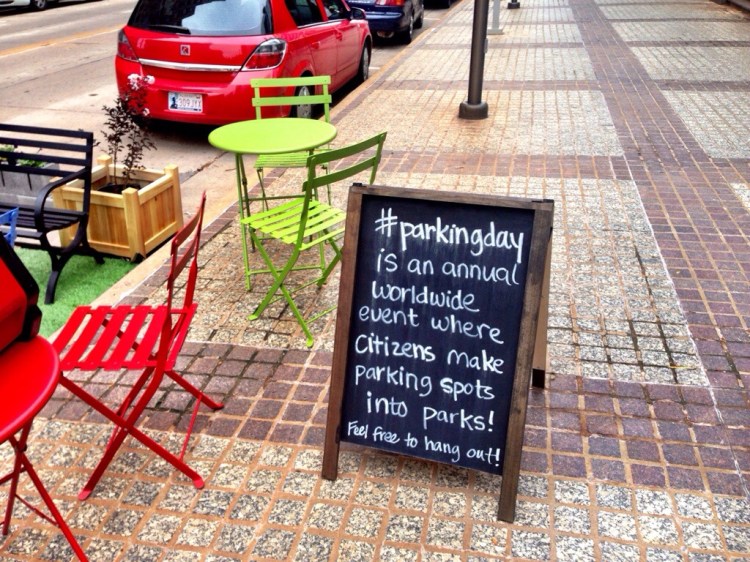 #parkingday
is an annual
worldwide
event where
Citizens make
parking spots
into parks!
Feel free to hang out!